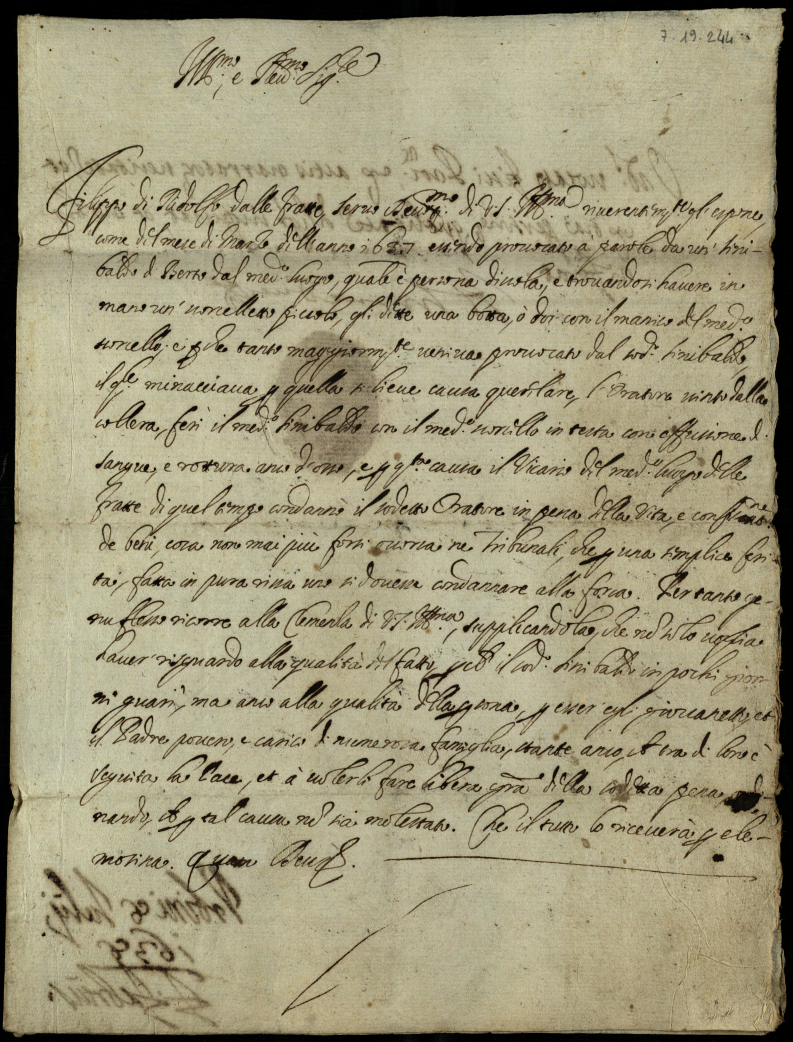 7-19-244
Ill.mo e Reu.mo Sig.re
Filippo di Ridolfo dalle fratte, seruo di V.S. Ill.ma riuerentem.te gli espone,
come del mese di Marzo dell'anno 1637. essendo prouocato a parole da un' Sini-
baldo d Berto dal med.o luogo, quale è persona, e trouandosi hauere in
mano un' roncelletto picciolo, gli dette una botta, ò doi con il manico del med.o
roncello; e tanto maggiorm.te ueniua prouocato dal sod.o Sinibaldo,
il q.le minacciaua p quella si lieue causa querelare, l'Oratore uinto dalla
collera, ferì il med.o Sinibaldo con il med.o roncillo in testa con effusione d.
sangue, e rottura anco d'osso, e p q.ta causa il Vicario del med.o luogo delle
fratte di quel tempo condannò il sodetto Oratore in pena della Vita, e
de beni, cosa non mai più forsi occorsa ne Tribunali, che p una semplice feri-
ta, fatta in pura rissa uno si douesse condannare alla forca. Per tanto ge-
nuflesso ricorre alla Clemenza di V.S. Ill.ma, supplicandola, che nõ solo uoglia
hauer risguardo alla qualità del fatto, il sod.o Sinibaldo in pochi gior-
ni guarì, ma anco alla qualità della psona, p esser egli giouanetto, et
il Padre pouero, e carico di numerosa famiglia, stante anco, ch tra di loro è
seguita la Pace, et à uolerli fare libera gra' della sodetta pena, ordi-
nando, ch p tal causa nõ sia molestato. Che il tutto lo riceuerà p ele-
mosina. Quam Deus